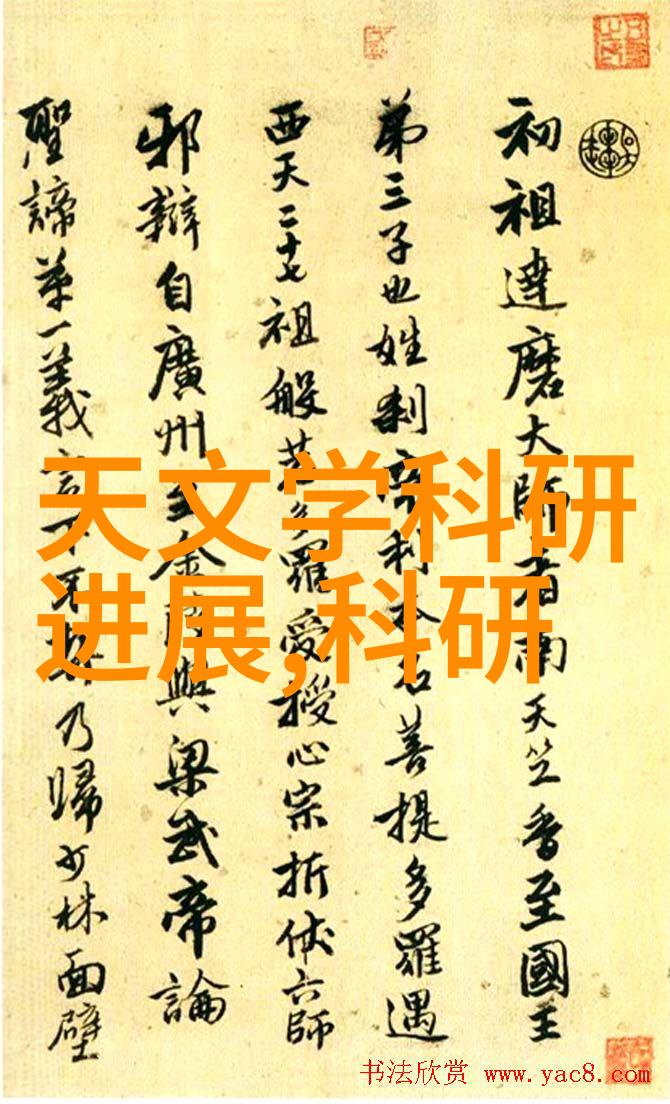 初祖達磨大師者南天竺香至國王
第三子也姓刹帝利本名菩提多羅遇
西天二十七祖般若多羅受授心宗折伏六師
邪辯自廣州至金陵與梁武帝論
聖諦第一義言下不契乃歸少林面壁
天文学科研
进展,科研
书法欣赏 www.yac8.com